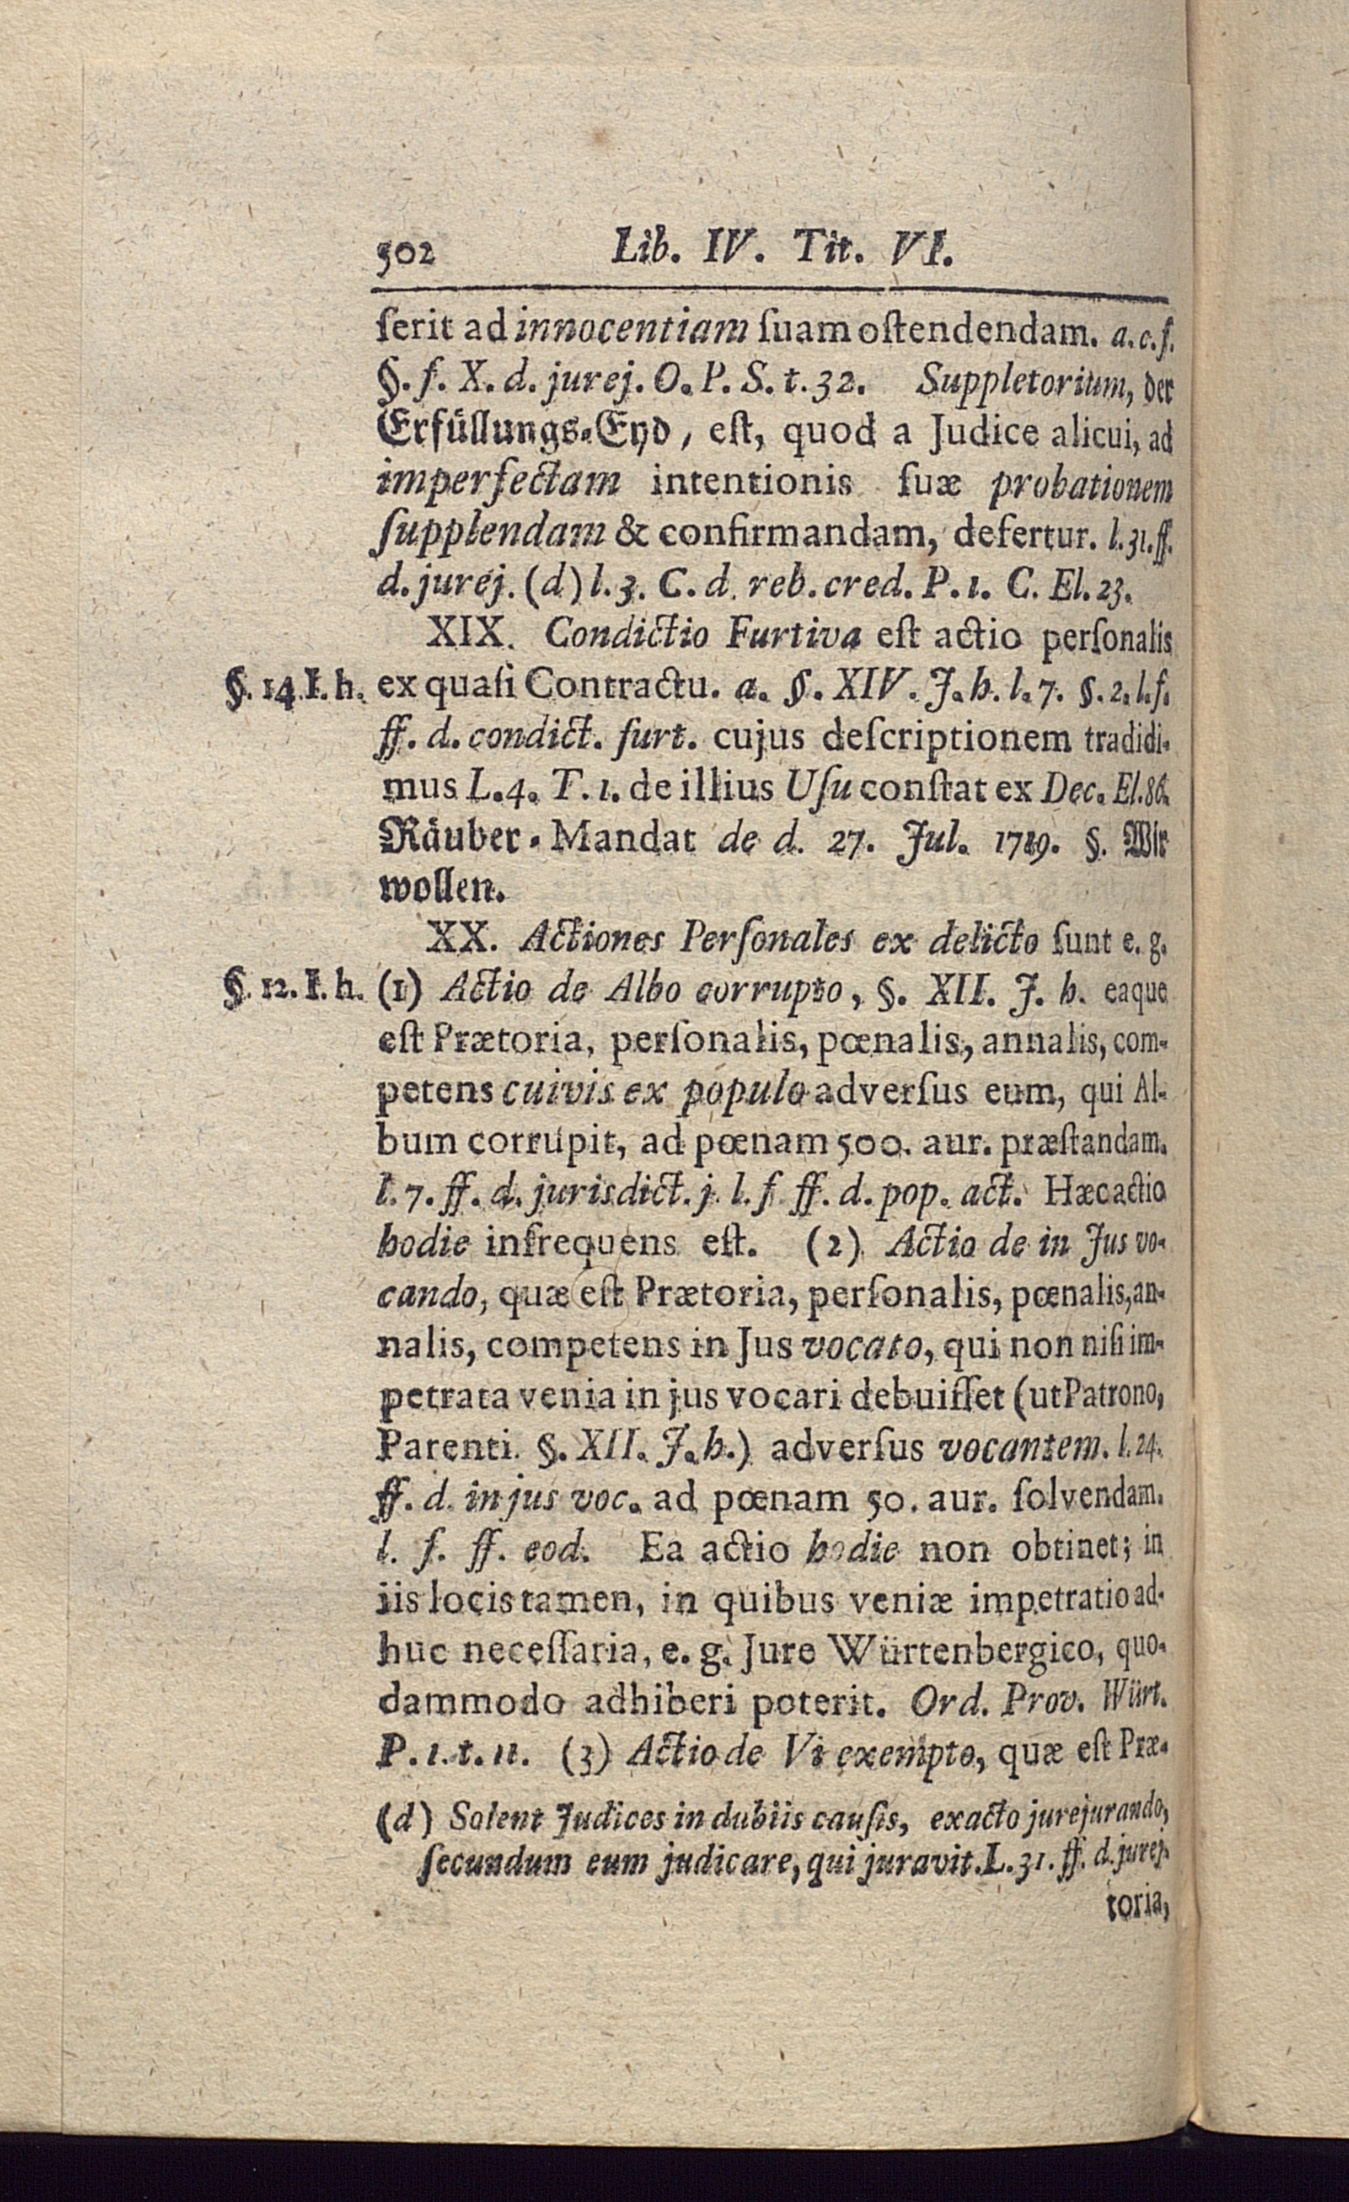 502 Lib. IV. Tit. VI.
ſerit ad innocentiam ſuam oſtendendam. a. c. f.
§. f. X. d. jurej. O. P. S. t. 32. Suppletorium, der
Erfüllungs-Eyd, eſt, quod a Judice alicui, ad
imperfectam intentionis ſuæ probationem
ſupplendam & confirmandam, defertur. l. 31. ff.
d. jurej. (d) l. 3. C. d. reb. cred. P. 1. C. El. 23.
XIX. Condictio Furtiva eſt actio perſonalis
§. 14. I. h. ex quaſi Contractu. a. §. XIV. J. h. l. 7. §. 2. l. f.
ff. d. condict. furt. cujus deſcriptionem tradidi-
mus L. 4. T. 1. de illius Uſu conſtat ex Dec. El. 86.
Räuber-Mandat de d. 27. Jul. 1719. §. Wir
wollen.
XX. Actiones Perſonales ex delicto ſunt e. g.
§. 12. I. h. (1) Actio de Albo corrupto, §. XII. J. h. eaque
eſt Prætoria, perſonalis, pœnalis, annalis, com-
petens cuivis ex populo adverſus eum, qui Al-
bum corrupit, ad pœnam 500. aur. præſtandam.
l. 7. ff. d. jurisdict. j. l. f. ff. d. pop. act. Hæc actio
hodie infrequens eſt. (2) Actio de in Jus vo-
cando, quæ eſt Prætoria, perſonalis, pœnalis, an-
nalis, competens in Jus vocato, qui non niſi im-
petrata venia in jus vocari debuiſſet (ut Patrono,
Parenti. §. XII. J. h.) adverſus vocantem. l. 24.
ff. d. in jus voc. ad pœnam 50. aur. ſolvendam.
l. f. ff. eod. Ea actio hodie non obtinet; in
iis locis tamen, in quibus veniæ impetratio ad-
huc neceſſaria, e. g. Jure Würtenbergico, quo-
dammodo adhiberi poterit. Ord. Prov. Würt.
P. 1. t. 11. (3) Actio de Vi exempto, quæ eſt Præ-
(d) Solent Judices in dubiis cauſis, exacto jurejurando,
ſecundum eum judicare, qui juravit. L. 31. ff. d. jurej.
toria,